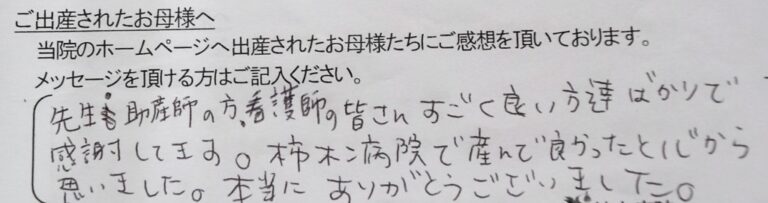 ご出産されたお母様へ
当院のホームページへ出産されたお母様たちにご感想を頂いております。
メッセージを頂ける方はご記入ください。
先生、助産師の方、看護師の皆さんすごく良い方達ばかりで
感謝してます。柿木病院で産んで良かったと心から
思いました。本当にありがとうございました。